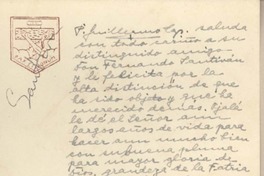 Fr. Guillermo Cy. saluda
con todo cariño a su
distinguido amigo
Don Fernando Santiván
y le felicita por la
alta distinción de que
ha sido objeto y que ha
merecido de más. Ojalá
le dé el Señor aun
largos años de vida para
hacer aun mucho bien
con su buena pluma
para mayor gloria de
Dios, grandeza de la Patria